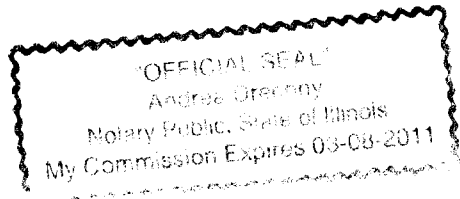 "OFFICIAL SEAL"
Andrea
Notary Public, State of Illinois
My Commission Expires 03-08-2011